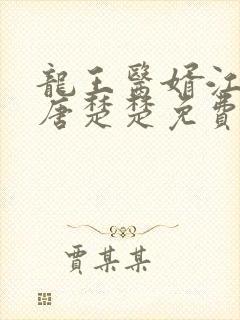 龍王醫婿江
唐楚楚免費
賈某某